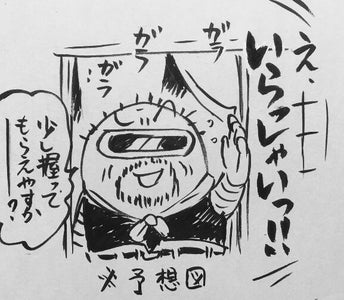 え、
いらっしゃいっ!!
ガラ
ガラ
ガラ
少し握って
もらえやすか
ー?
※予想図